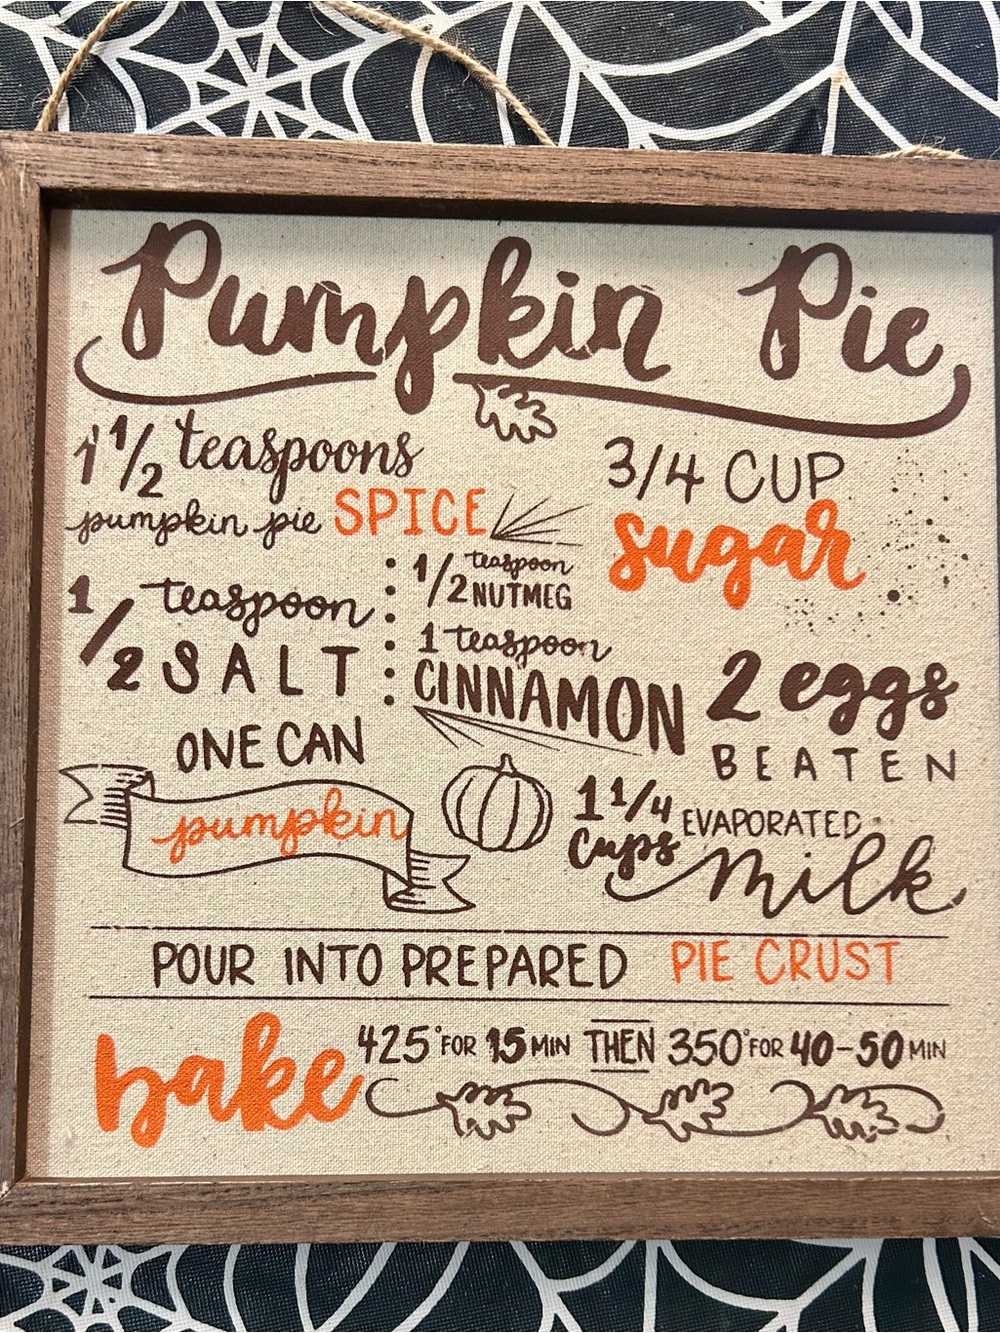 Pumpkin Pie
1 1/2 teaspoons
pumpkin pie SPICE
3/4 CUP
sugar
1/2 teaspoon
SALT
1/2 teaspoon
NUTMEG
1 teaspoon
CINNAMON
2 eggs
BEATEN
ONE CAN
pumpkin
1 1/4
Cups EVAPORATED
milk
POUR INTO PREPARED PIE CRUST
bake 425° FOR 15 MIN THEN 350° FOR 40-50 MIN